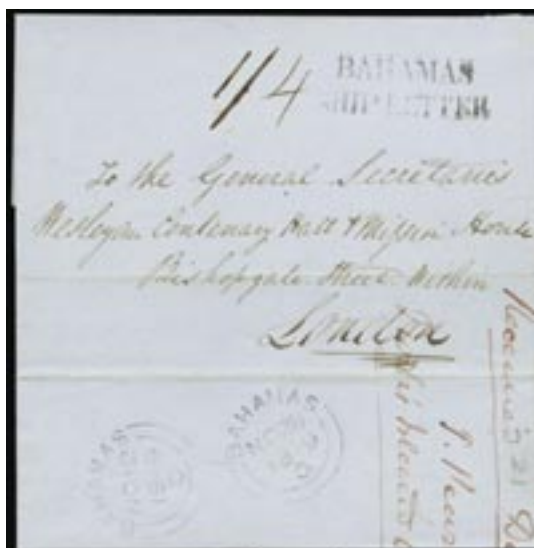 1/4
BAHAMAS
SHIP LETTER
To the General Secretaries
Wesleyan Centenary Hall & Mission House
Bishopgate Street Within
London
BAHAMAS
BAHAMAS
Received 21